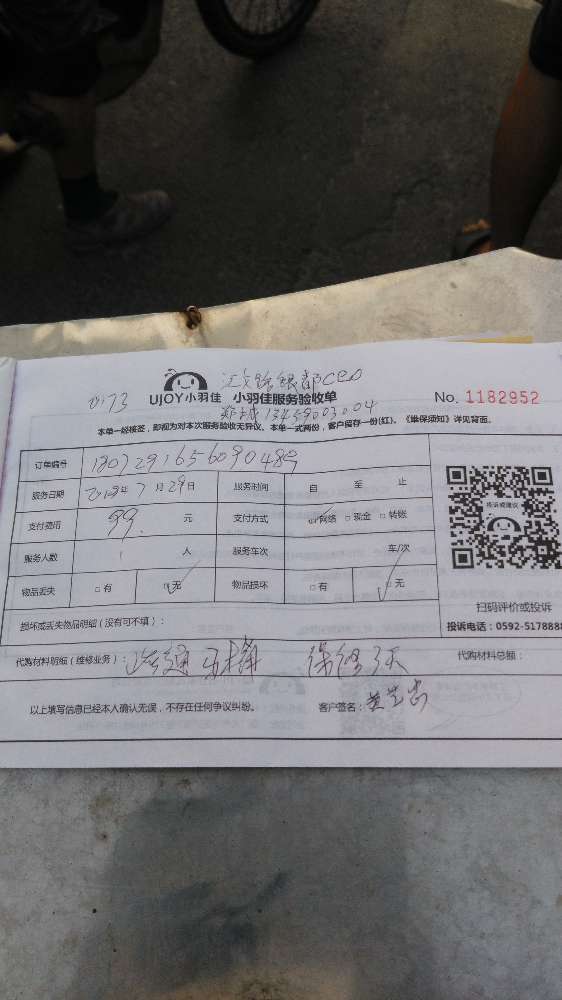 UJOY小羽佳 小羽佳服务验收单
No. 1182952
本单一经核签，即视为对本次服务验收无异议。本单一式两份，客户留存一份(红)。《维保须知》详见背面。
订单编号
服务日期 2018年7月29日 服务时间 自 至 止
支付费用 99. 元 支付方式 ☑网络 □现金 □转账
服务人数 1 人 服务车次 车/次
物品丢失 □有 ☑无 物品损坏 □有 ☑无
投诉或建议
扫码评价或投诉
投诉电话：0592-5178888
损坏或丢失物品明细（没有可不填）：
代购材料明细（维修业务）： 疏通 马桶 保修3天 代购材料总额：
以上填写信息已经本人确认无误，不存在任何争议纠纷。 客户签名：